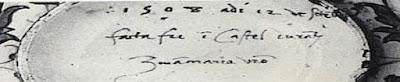 1508 adi 12 de seteb
facta fu i Castel durat
Zouamaria vro